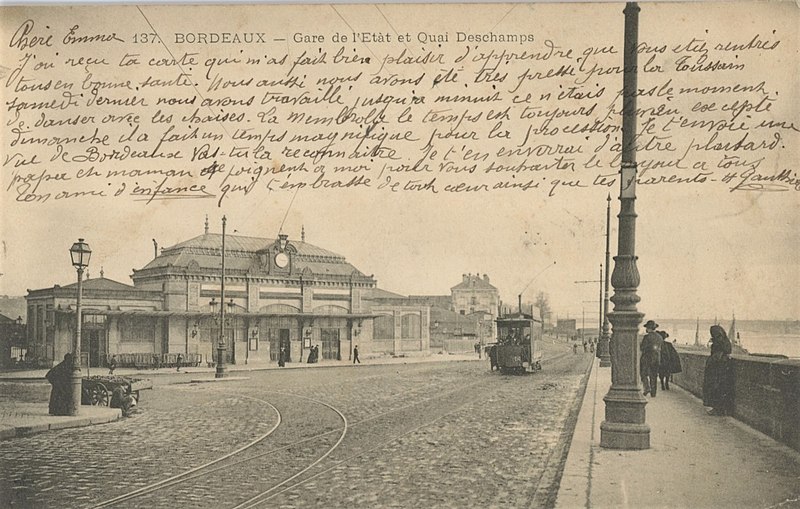 Chère Emma
137. BORDEAUX — Gare de l'Etàt et Quai Deschamps
J'ai reçu ta carte qui m'as fait bien plaisir d'apprendre que vous etiez rentrés
tous en bonne santé. Nous aussi nous avons été très pressé pour la Toussain
samedi dernier nous avons travaillé jusqu'a minuit ce n'étais pas le moment
de danser avec les chaises. La Membrolle le temps est toujours excepté
dimanche il a fait un temps magnifique pour la procession. Je t'envoie une
vue de Bordeaux vas-tu la reconnaitre Je t'en enverrai d'autre plustard.
papa et maman se joignent a moi pour vous souhaiter le bonjour a tous
Ton ami d'enfance qui t'embrasse de tout cœur ainsi que tes parents - H Gauthier